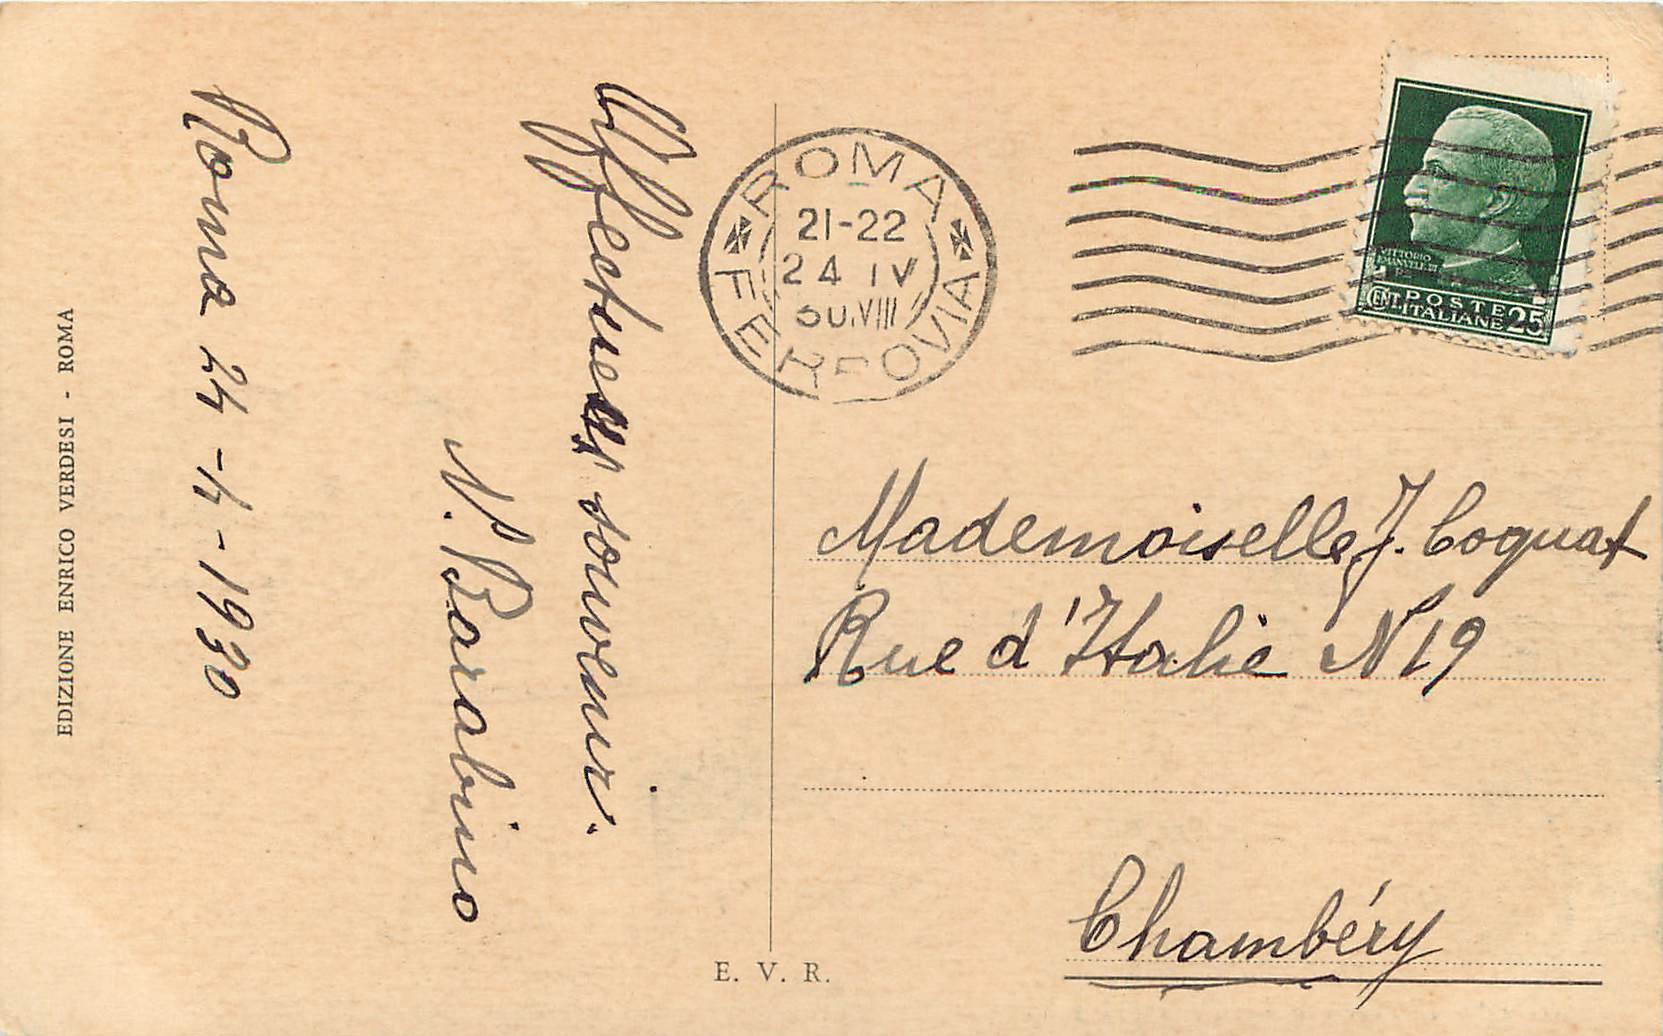 Roma 24-4-1930
Affectueux souvenir.
N. Barabino
EDIZIONE ENRICO VERDESI - ROMA
E. V. R.
ROMA FERROVIA
21-22
24 IV
30.VIII
VITTORIO
EMANUELE III
CENT. POSTE 25
ITALIANE
Mademoiselle J. Coquat
Rue d'Italie N 19
Chambéry